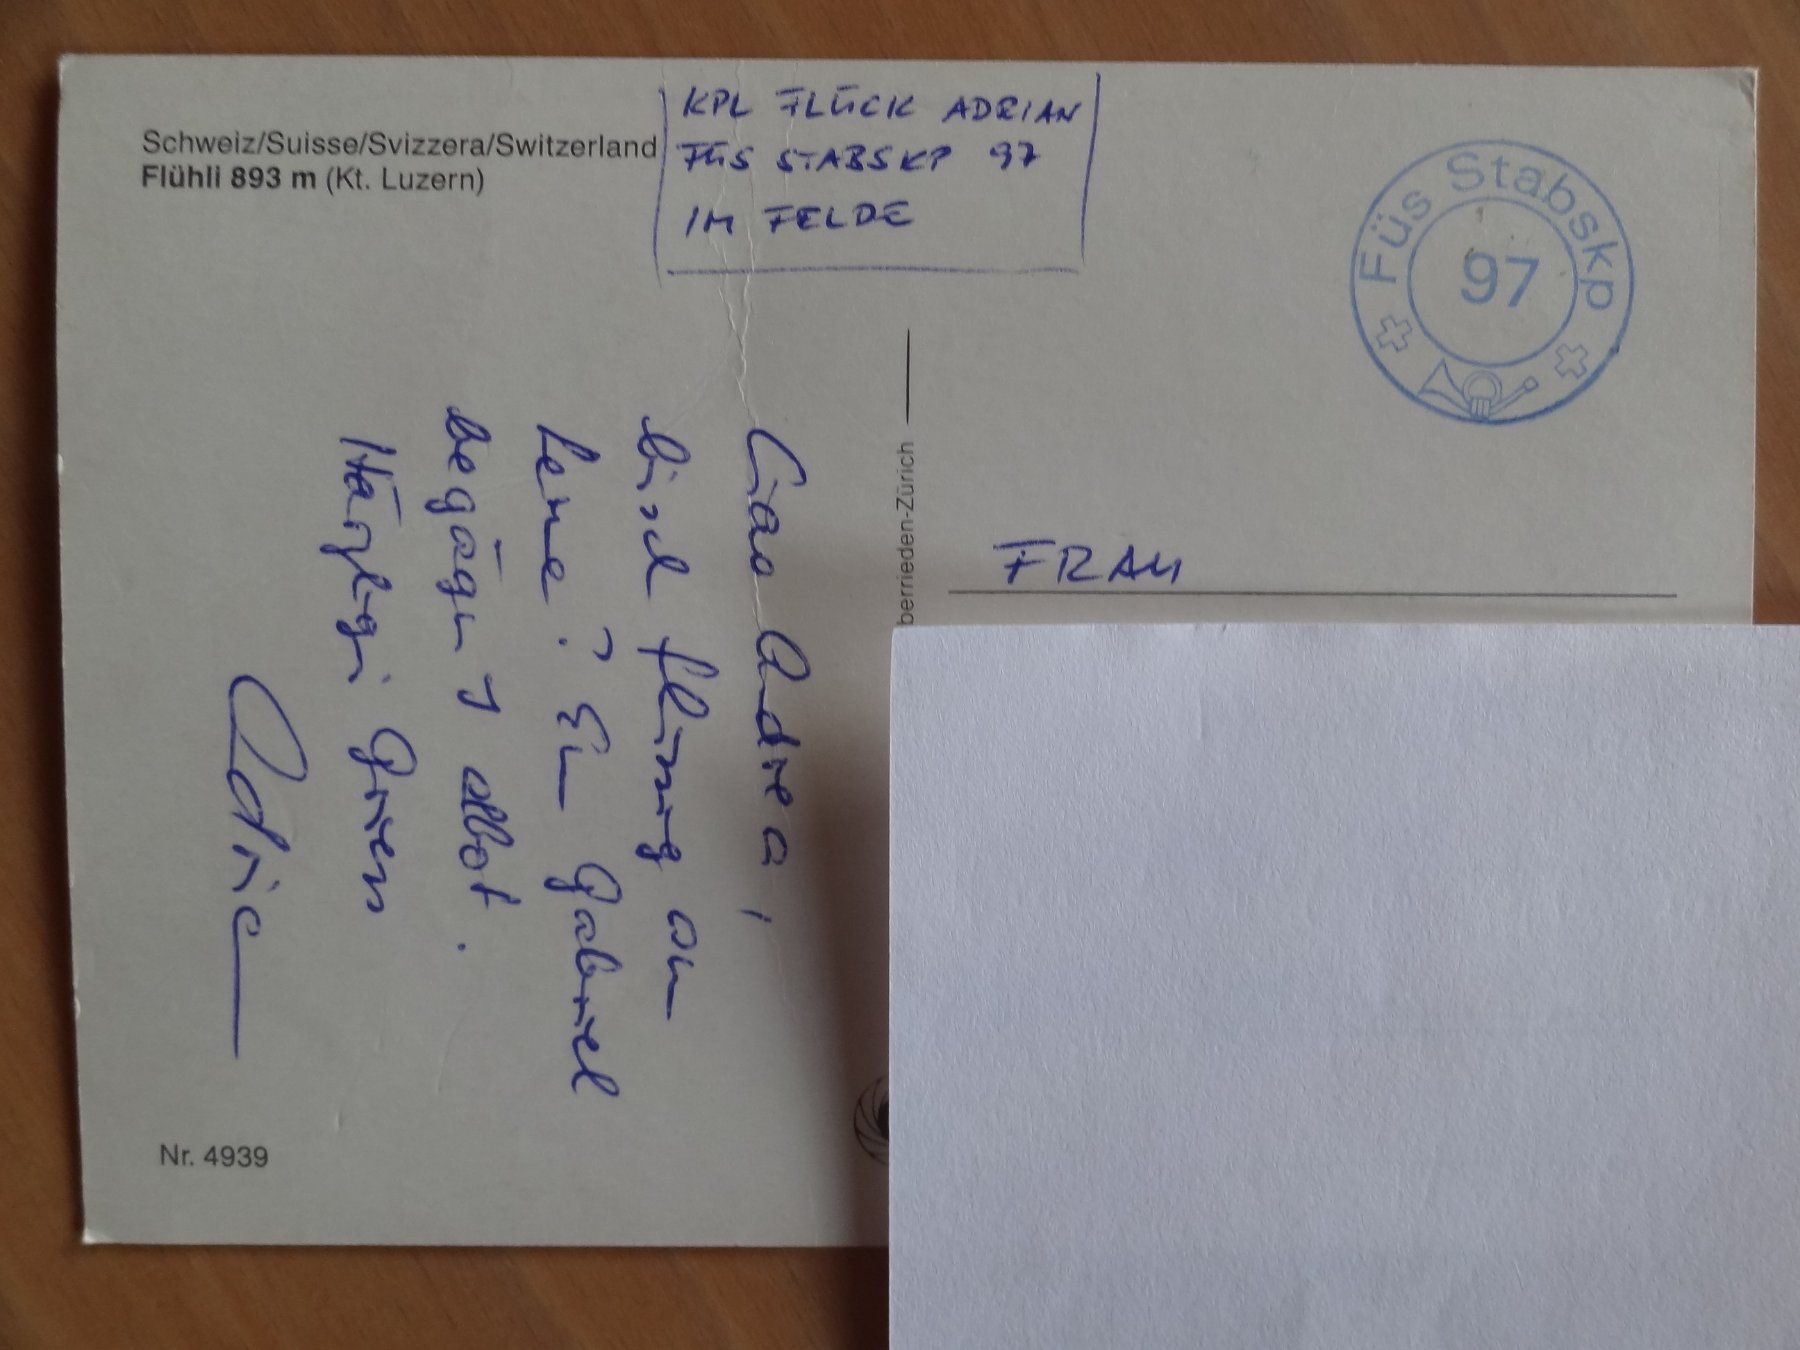 Schweiz/Suisse/Svizzera/Switzerland
Flühli 893 m (Kt. Luzern)
KPL FLÜCK ADRIAN
FÜS STABSKP 97
IM FELDE
Füs Stabskp
97
FRAU
berrieden-Zürich
Ciao Andrea,
bisch flissig am
Lerne? Em Gabriel
begägn I albot.
Härzligi Griess
Adria
Nr. 4939